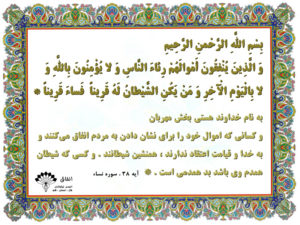 بِسْمِ اللَّهِ الرَّحْمنِ الرَّحيمِ
وَ الَّذينَ يُنْفِقُونَ أَمْوالَهُمْ رِئاءَ النَّاسِ وَ لا يُؤْمِنُونَ بِاللَّهِ وَ
لا بِالْيَوْمِ الْآخِرِ وَ مَنْ يَكُنِ الشَّيْطانُ لَهُ قَريناً فَساءَ قَريناً *
به نام خداوند هستی بخش مهربان
و کسانی که اموال خود را برای نشان دادن به مردم انفاق می‌کنند و
به خدا و قیامت اعتقاد ندارند ؛ همنشین شیطانند . و کسی که شیطان
همدم وی باشد بد همدمی است . * آیه ۳۸ . سوره نساء
انفاق